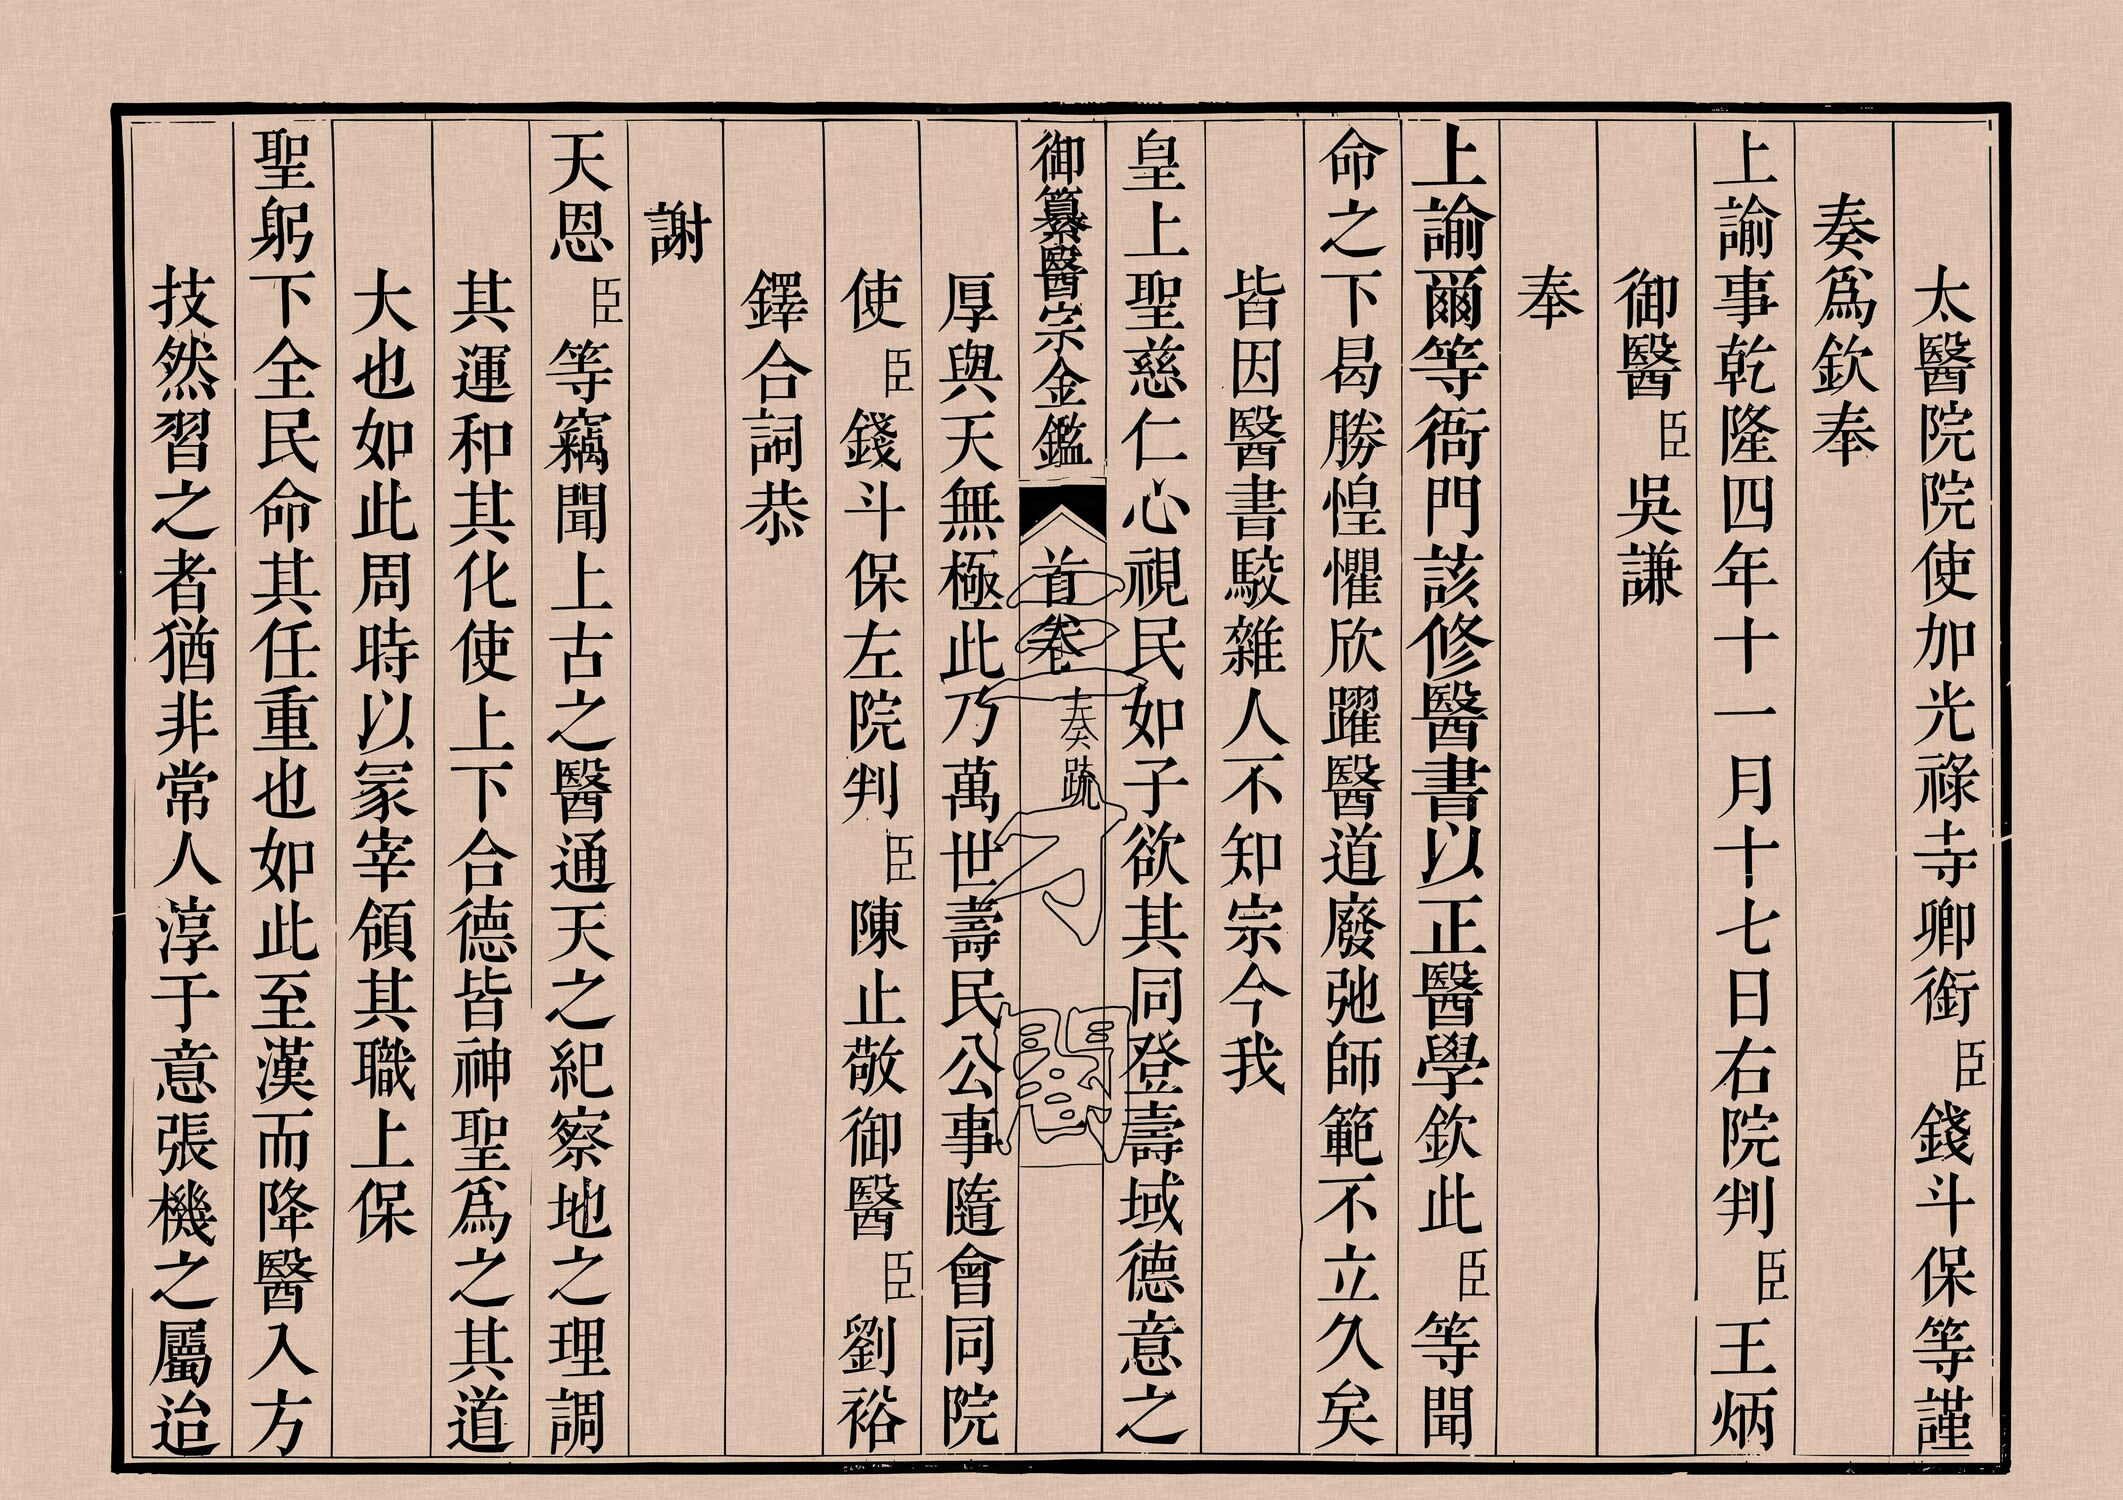 太醫院院使加光祿寺卿銜臣錢斗保等謹
奏爲欽奉
上諭事乾隆四年十一月十七日右院判臣王炳
御醫臣吳謙
奉
上諭爾等衙門該修醫書以正醫學欽此臣等聞
命之下曷勝惶懼欣躍醫道廢弛師範不立久矣
皆因醫書駁雜人不知宗今我
皇上聖慈仁心視民如子欲其同登壽域德意之
御纂醫宗金鑑 首卷 奏疏
厚與天無極此乃萬世壽民公事隨會同院
使臣錢斗保左院判臣陳止敬御醫臣劉裕
鐸合詞恭
謝
天恩臣等竊聞上古之醫通天之紀察地之理調
其運和其化使上下合德皆神聖爲之其道
大也如此周時以冢宰領其職上保
聖躬下全民命其任重也如此至漢而降醫入方
技然習之者猶非常人淳于意張機之屬迨